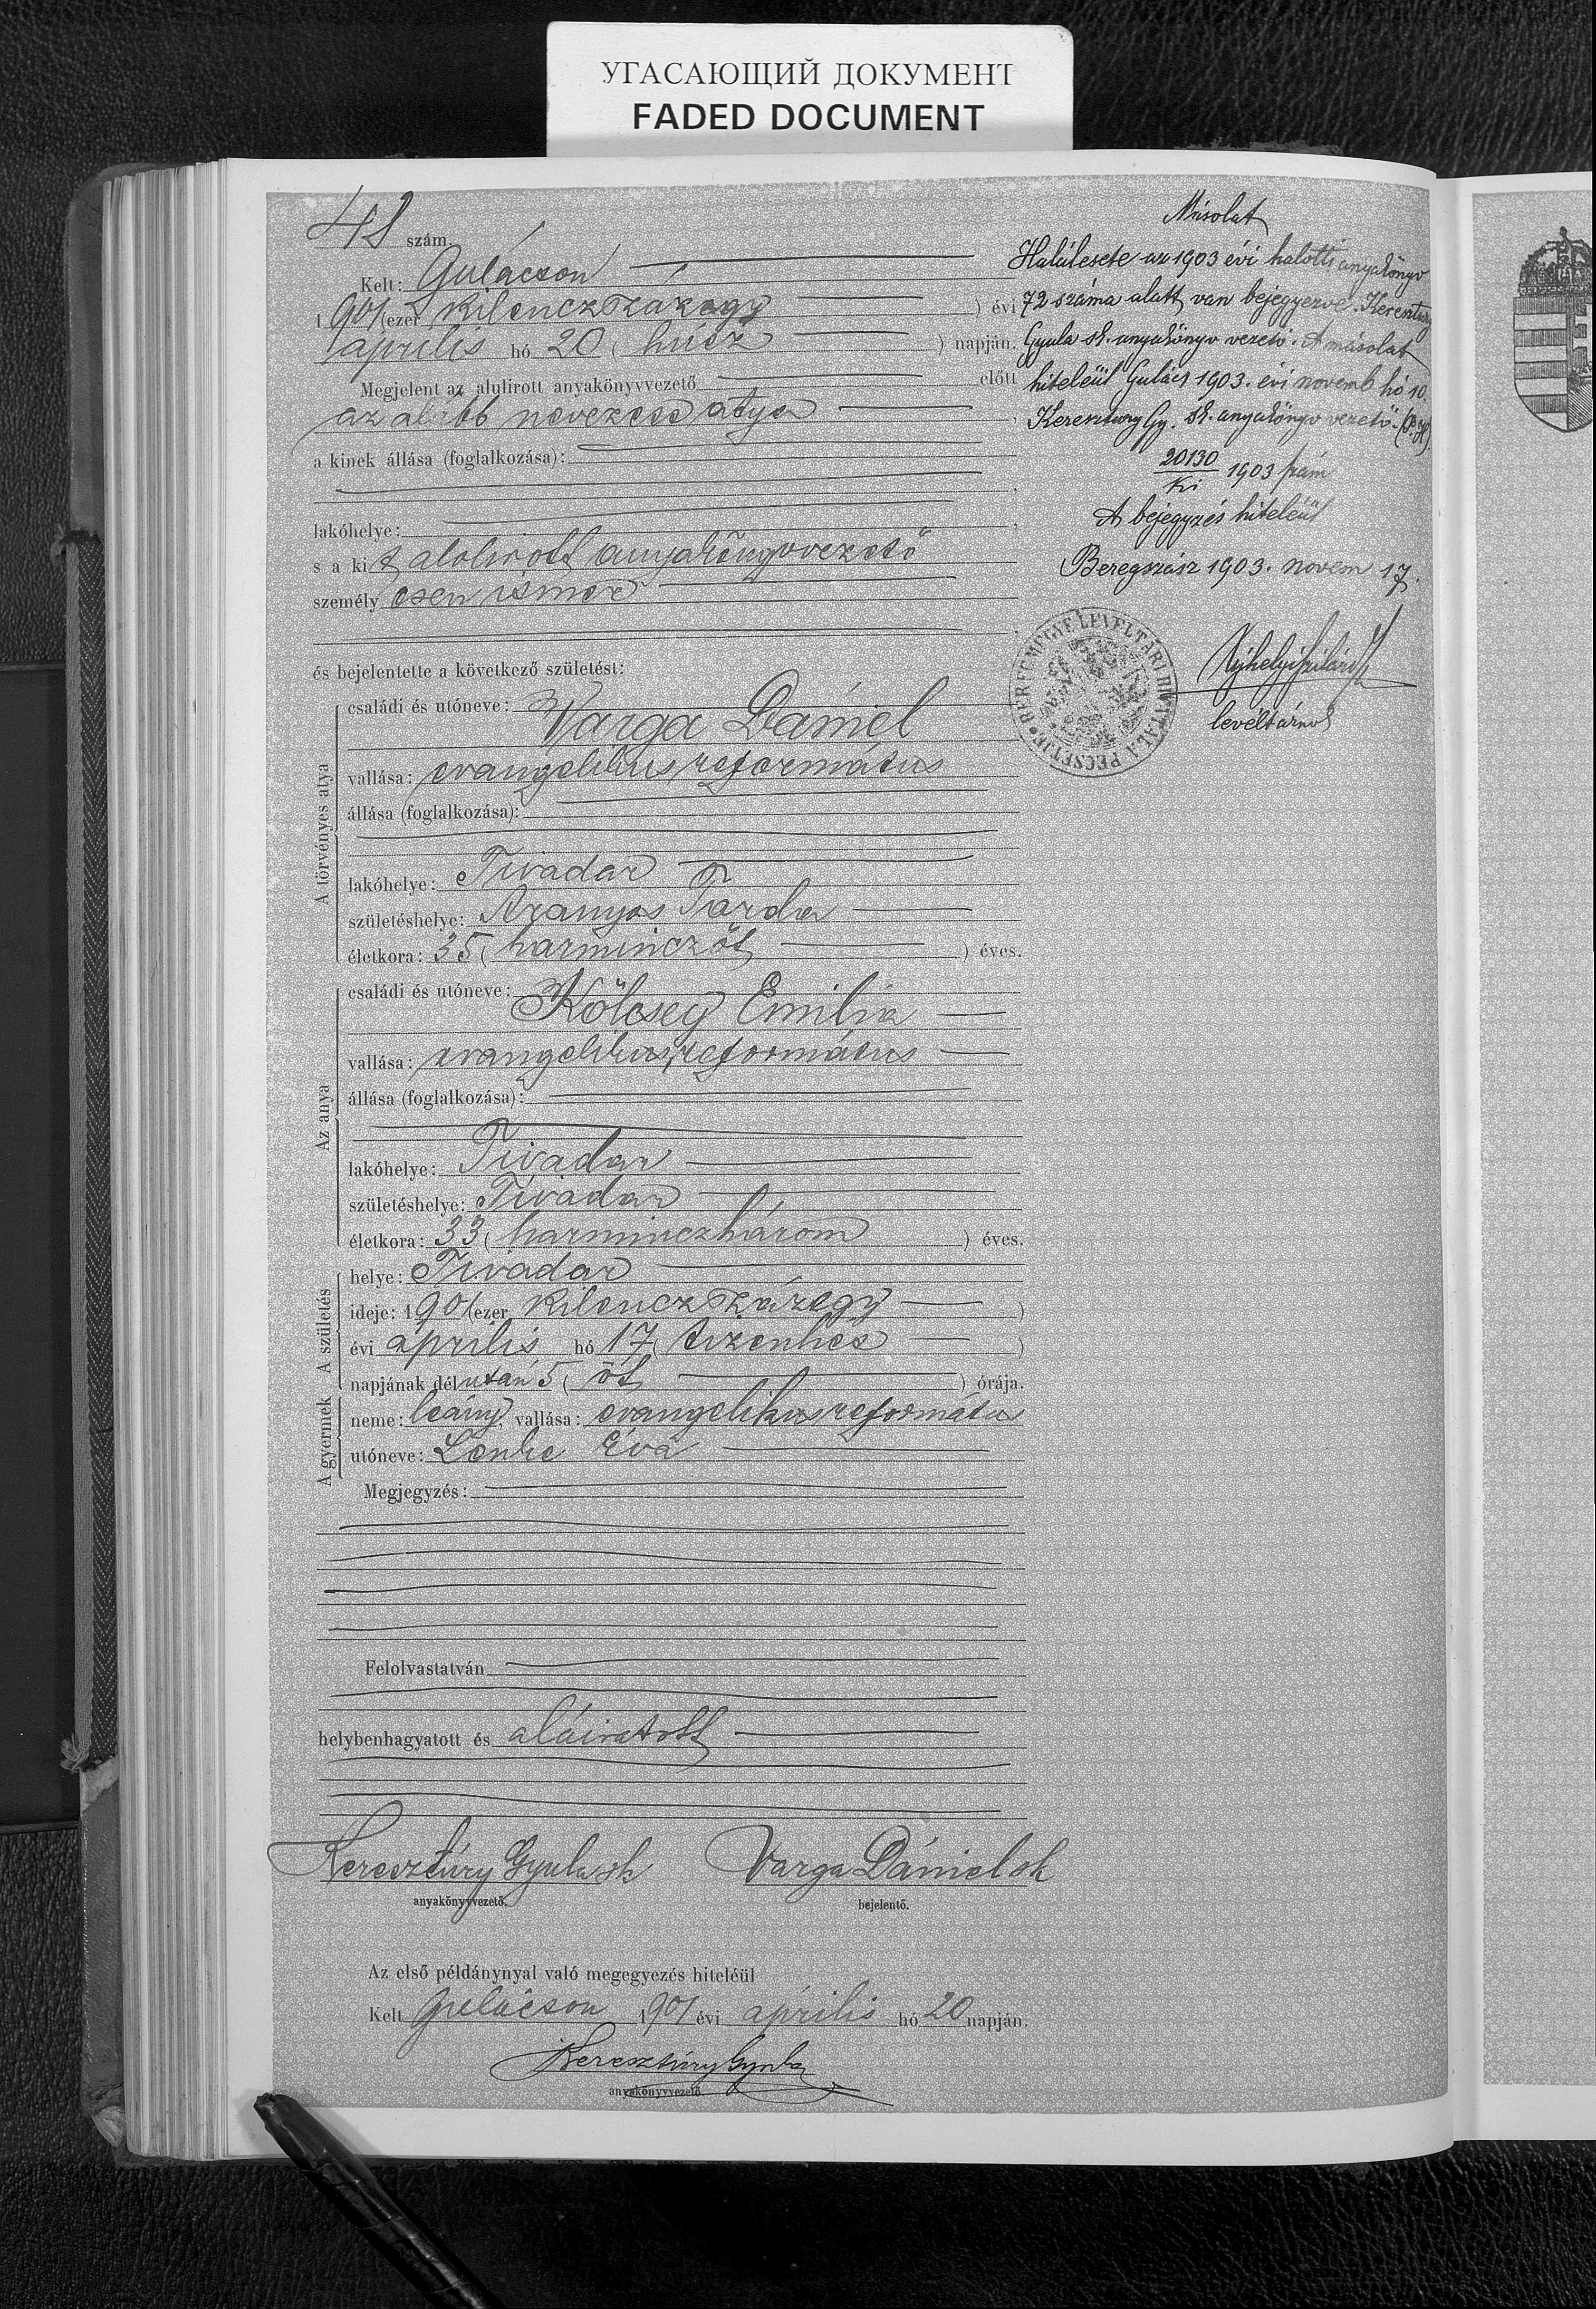 УГАСАЮЩИЙ ДОКУМЕНТ
FADED DOCUMENT
48 szám.
Kelt: Gulácson
1901 (ezer kilenczszázegy ) évi
április hó 20 ( húsz ) napján.
Megjelent az alulirott anyakönyvvezető előtt
az alább nevezett atya
a kinek állása (foglalkozása):
lakóhelye:
s a kit alólirott anyakönyvvezető
személyesen ismer
és bejelentette a következő születést:
A törvényes atya
családi és utóneve: Varga Dániel
vallása: evangelikus református
állása (foglalkozása):
lakóhelye: Tivadar
születéshelye: Aranyos Torda
életkora: 35 ( harminczöt ) éves.
Az anya
családi és utóneve: Kölcsey Emilia
vallása: evangelikus református
állása (foglalkozása):
lakóhelye: Tivadar
születéshelye: Tivadar
életkora: 33 ( harminczhárom ) éves.
A születés
helye: Tivadar
ideje: 1901 (ezer kilenczszázegy )
évi április hó 17 ( tizenhét )
napjának délután 5 ( öt ) órája.
A gyermek
neme: leány, vallása: evangelikus református
utóneve: Lenke Éva
Megjegyzés:
Felolvastatván
helybenhagyatott és aláiratott
Keresztúry Gyula sk Varga Dániel sk
anyakönyvvezető. bejelentő.
Az első példánynyal való megegyezés hiteléül
Kelt Gulácson 1901 évi április hó 20 napján.
Keresztúry Gyula
anyakönyvvezető.
Másolat
Halálesete az 1903 évi halotti anyakönyv
72 száma alatt van bejegyezve. Keresztury
Gyula sk. anyakönyv vezető. A másolat
hiteléül Gulács 1903. évi novemb hó 10.
Keresztury Gy. sk. anyakönyv vezető. (P.H.)
20130
ki 1903 szám
A bejegyzés hiteléül
Beregszász 1903. novem 17.
BEREGMEGYE LEVÉLTÁRI HIVATALA PECSETJE
Ujhelyi Szilárd
levéltárnok